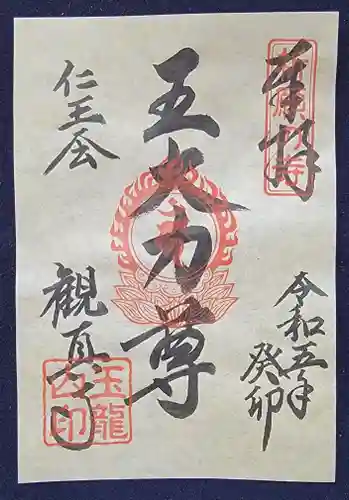 奉拝
令和五年
癸卯
五大力尊
仁王会
観真寺
玉龍